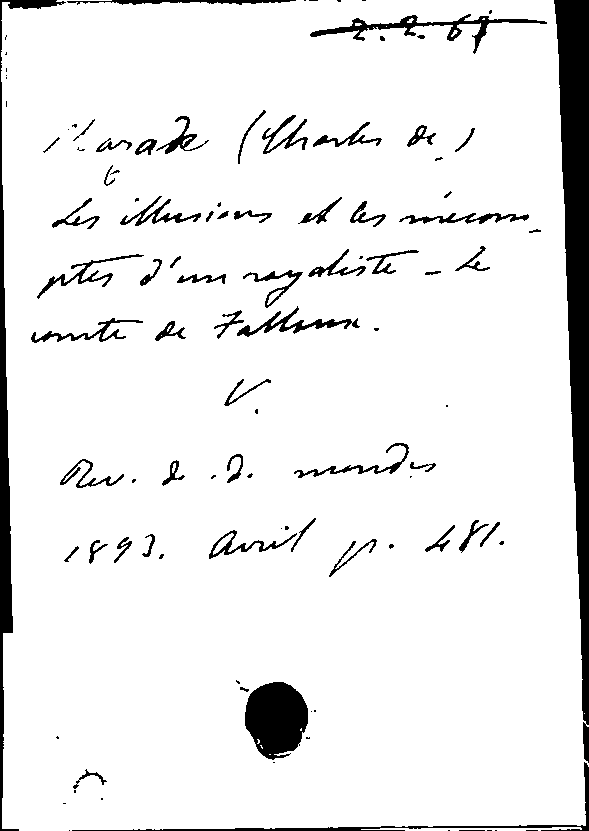 2.2.67
Mazade (Charles de)
Les illusions et les mécom-
ptes d'un royaliste - Le
comte de Falloux.
V.
Rev. d. d. mondes
1893. Avril p. 481.